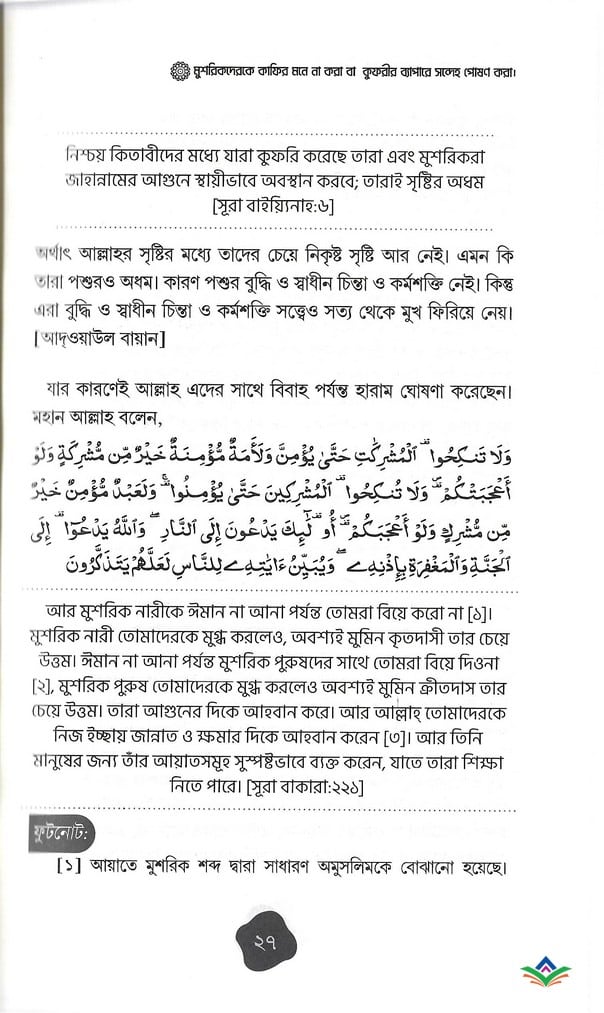 মুশরিকদেরকে কাফির মনে না করা বা কুফরীর ব্যাপারে সন্দেহ পোষণ করা।
নিশ্চয় কিতাবীদের মধ্যে যারা কুফরি করেছে তারা এবং মুশরিকরা
জাহান্নামের আগুনে স্থায়ীভাবে অবস্থান করবে; তারাই সৃষ্টির অধম
[সূরা বাইয়্যিনাহ:৬]
অর্থাৎ আল্লাহর সৃষ্টির মধ্যে তাদের চেয়ে নিকৃষ্ট সৃষ্টি আর নেই। এমন কি
তারা পশুরও অধম। কারণ পশুর বুদ্ধি ও স্বাধীন চিন্তা ও কর্মশক্তি নেই। কিন্তু
এরা বুদ্ধি ও স্বাধীন চিন্তা ও কর্মশক্তি সত্ত্বেও সত্য থেকে মুখ ফিরিয়ে নেয়।
[আদ্ওয়াউল বায়ান]
যার কারণেই আল্লাহ এদের সাথে বিবাহ পর্যন্ত হারাম ঘোষণা করেছেন।
মহান আল্লাহ বলেন,
وَلَا تَنكِحُوا۟ ٱلْمُشْرِكَٰتِ حَتَّىٰ يُؤْمِنَّ وَلَأَمَةٌ مُّؤْمِنَةٌ خَيْرٌ مِّن مُّشْرِكَةٍ وَلَوْ
أَعْجَبَتْكُمْ ۗ وَلَا تُنكِحُوا۟ ٱلْمُشْرِكِينَ حَتَّىٰ يُؤْمِنُوا۟ ۚ وَلَعَبْدٌ مُّؤْمِنٌ خَيْرٌ
مِّن مُّشْرِكٍ وَلَوْ أَعْجَبَكُمْ ۗ أُو۟لَٰٓئِكَ يَدْعُونَ إِلَى ٱلنَّارِ ۖ وَٱللَّهُ يَدْعُوٓا۟ إِلَى
ٱلْجَنَّةِ وَٱلْمَغْفِرَةِ بِإِذْنِهِۦ ۖ وَيُبَيِّنُ ءَايَٰتِهِۦ لِلنَّاسِ لَعَلَّهُمْ يَتَذَكَّرُونَ
আর মুশরিক নারীকে ঈমান না আনা পর্যন্ত তোমরা বিয়ে করো না [১]।
মুশরিক নারী তোমাদেরকে মুগ্ধ করলেও, অবশ্যই মুমিন কৃতদাসী তার চেয়ে
উত্তম। ঈমান না আনা পর্যন্ত মুশরিক পুরুষদের সাথে তোমরা বিয়ে দিওনা
[২], মুশরিক পুরুষ তোমাদেরকে মুগ্ধ করলেও অবশ্যই মুমিন ক্রীতদাস তার
চেয়ে উত্তম। তারা আগুনের দিকে আহবান করে। আর আল্লাহ্ তোমাদেরকে
নিজ ইচ্ছায় জান্নাত ও ক্ষমার দিকে আহবান করেন [৩]। আর তিনি
মানুষের জন্য তাঁর আয়াতসমূহ সুস্পষ্টভাবে ব্যক্ত করেন, যাতে তারা শিক্ষা
নিতে পারে। [সূরা বাকারা:২২১]
ফুটনোট:
[১] আয়াতে মুশরিক শব্দ দ্বারা সাধারণ অমুসলিমকে বোঝানো হয়েছে।
২৭